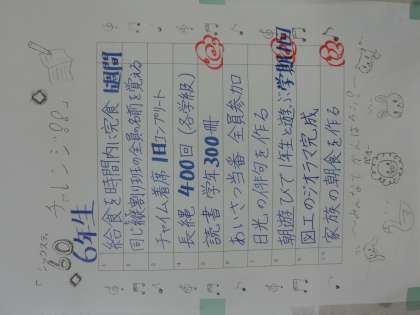 「シックスティ
60 チャレンジ'88」
6年生
1 給食を時間内に完食 1週間
2 同じ縦割り班の全員の名前を覚える
3 チャイム着席 1日コンプリート
4 長縄 400回(各学級)
5 読書 学年300冊
6 あいさつ当番 全員参加
7 日光の俳句を作る
8 朝遊びで1年生と遊ぶ 学期1回
9 図工のジオラマ完成
10 家族の朝食を作る
みんなでがんばろう!